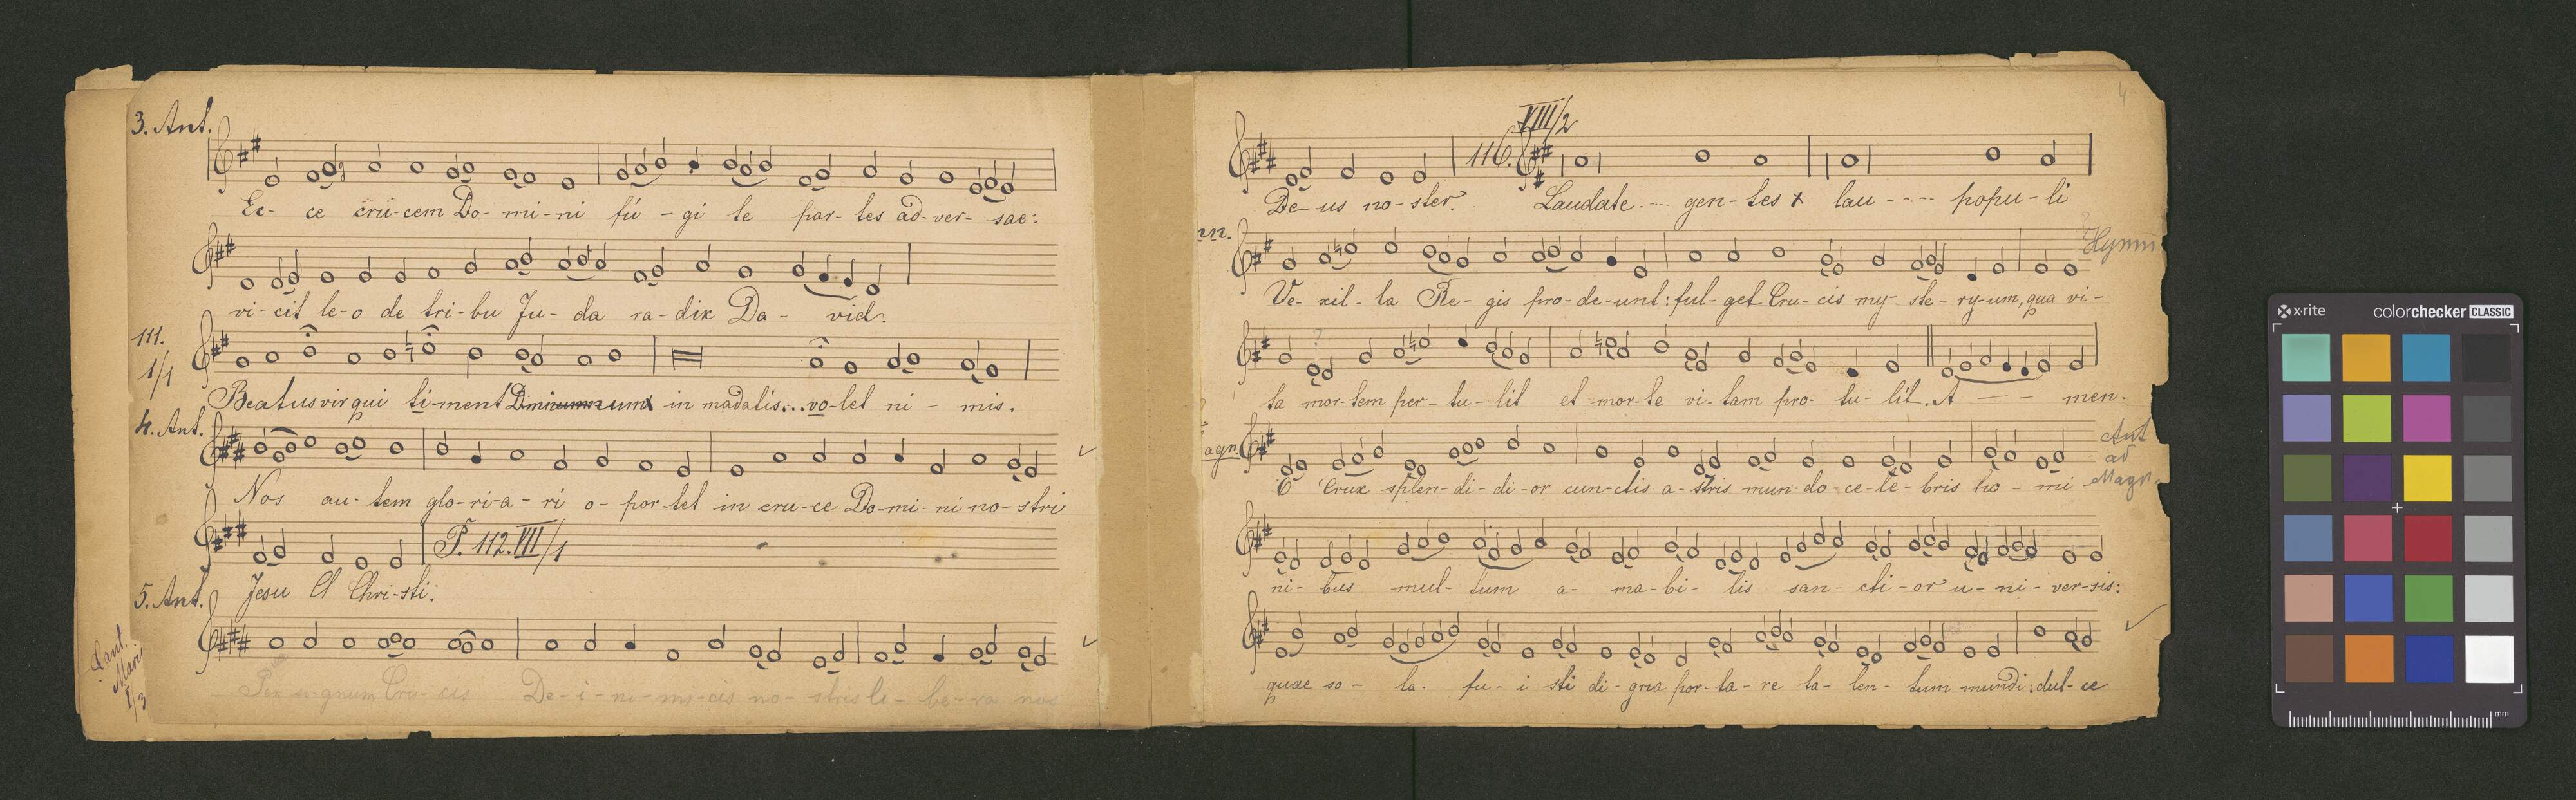 3. Ant.
Ec- ce cru-cem Do- mi-ni fú - gi te par- tes ad-ver- sae:
vi-cit le-o de tri-bu Ju- da ra-dix Da- vid.
111.
1/1
Beatus vir qui ti-ment in madatis... vo-let ni - mis.
4. Ant.
Nos au- tem glo-ri-a- ri o- por-tet in cru-ce Do-mi-ni no-stri
P. 112. VII/1
Jesu Chri-sti.
5. Ant.
Cant. Mari I/3
Per si-gnum Cru- cis De- i- ni-my-cis no- stris li- be-ra nos
4
VIII/2
116.
De- us no-ster. Laudate .... gen-tes x lau - ---- popu-li
in.
Hymn
Ve- xil- la Re- gis pro-de-unt: ful-get Cru-cis my- ste-ry-um, qua vi-
?
ta mor-tem per- tu- lit et mor-te vi-tam pro- tu- lit. A - - men.
agn.
Ant ad Magn.
O Crux splen-di-di-or cun-ctis a-stris mun-do-ce-le-bris ho - mi
ni- bus mul- tum a- ma-bi- lis san- cti-or u-ni- ver-sis:
quae so- la- fu- i sti di-gna por-ta-re ta- len- tum mundi: dul-ce
x·rite
colorchecker CLASSIC
mm